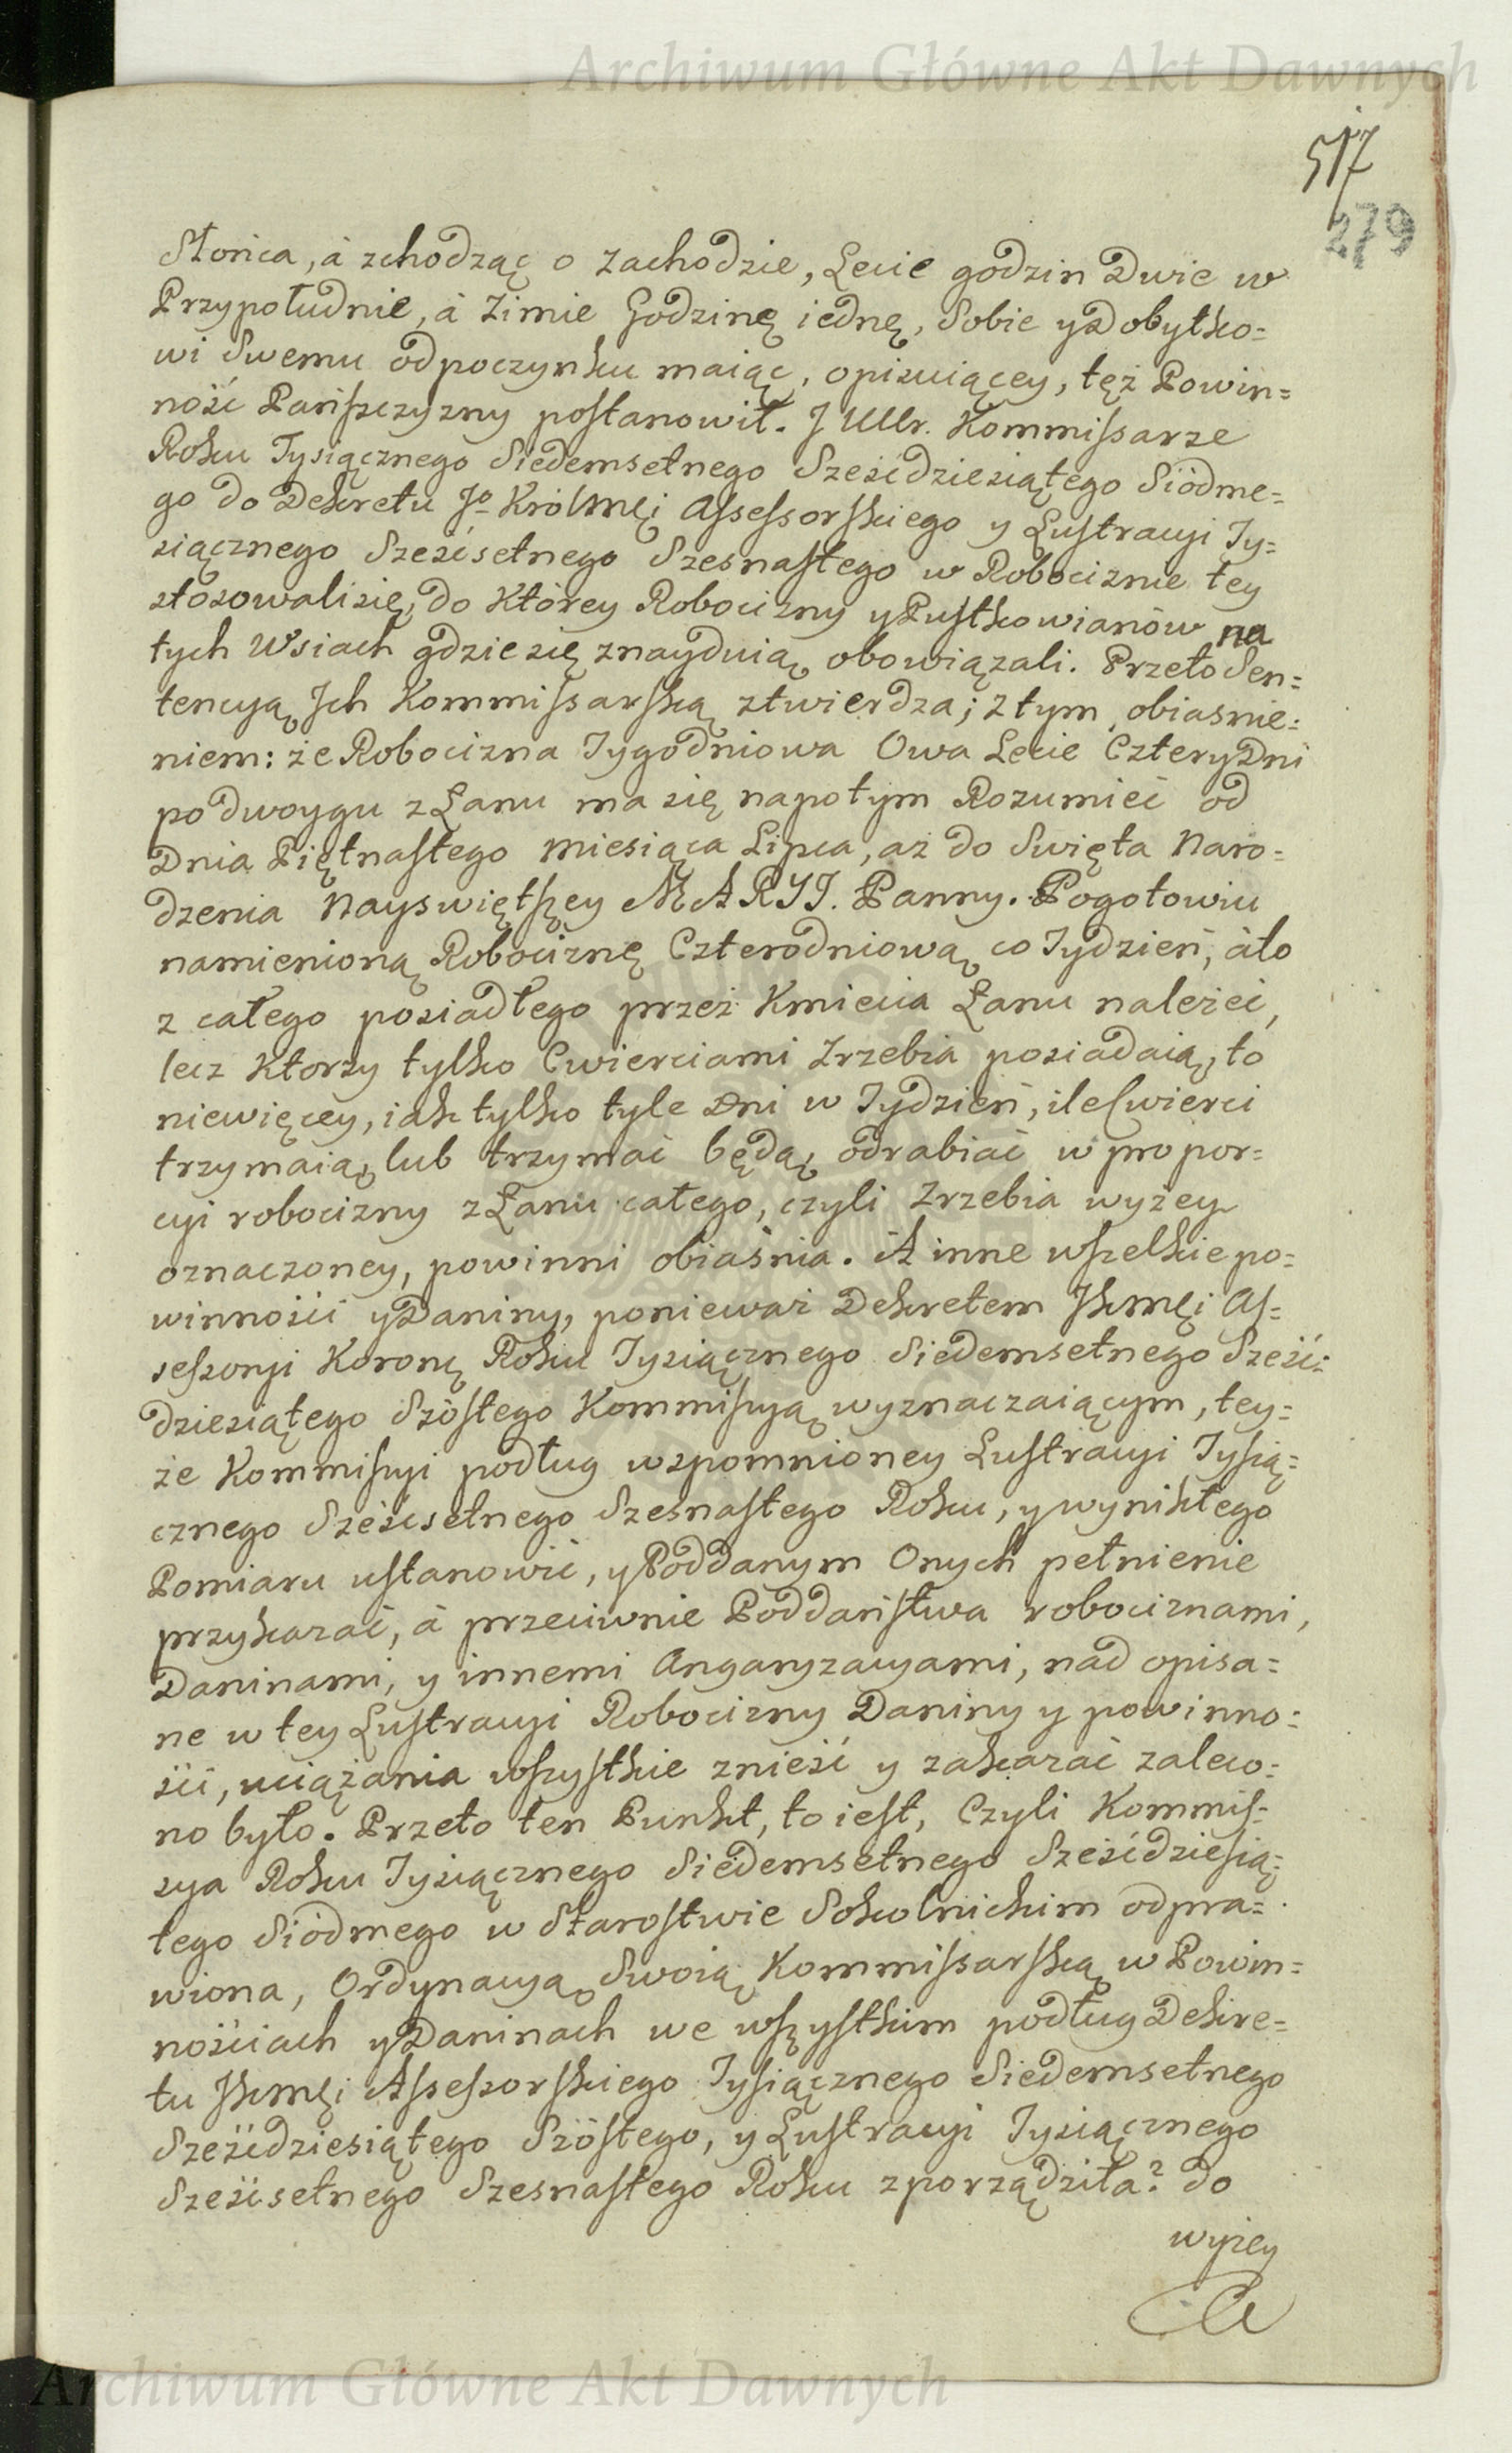 Archiwum Główne Akt Dawnych
517
279
Słońca, à zchodząc o Zachodzie, Lecie godzin Dwie w
Przypołudnie, à Zimie Godzinę iednę, Sobie y Dobytko=
wi Swemu odpoczynku maiąc, opisuiącey, tęż Powin=
ność Pańszczyzny postanowił. J Ullr. Kommissarze
Roku Tysiącznego Siedemsetnego Sześćdziesiątego Siódme=
go do Dekretu Jo Król Mci Assessorskiego y Lustracyi Ty=
siącznego Sześćsetnego Szesnastego w Robociznie tey
stosowali się, do Którey Robocizny y Pustkowianów na
tych Wsiach gdzie się znayduią obowiązali. Przeto Sen=
tencyą Jch Kommissarską ztwierdza; z tym obiasnie=
niem: że Robocizna Tygodniowa Owa Lecie Cztery Dni
po dwoygu z Łanu ma się napotym Rozumieć od
Dnia Piętnastego Miesiąca Lipca, aż do Swięta Naro=
dzenia Nayswiętszey MARYI. Panny. Pogotowiu
namienioną Robociznę Czterodniową co Tydzień, àto
z całego posiadłego przez Kmiecia Łanu należeć,
lecz Ktorzy tylko Cwierciami Zrzebia posiadaią, to
niewięcey, iak tylko tyle Dni w Tydzień, ile Cwierci
trzymaią, lub trzymać będą, odrabiać w propor=
cyi robocizny z Łanu całego, czyli Zrzebia wyżey
oznaczoney, powinni obiaśnia. A inne wszelkie po=
winności y Daniny, ponieważ Dekretem Jkmci As=
sessoryi Koronę Roku Tysiącznego Siedemsetnego Sześć=
dziesiątego Szóstego Kommissyą wyznaczaiącym, tey=
że Kommissyi podług wspomnioney Lustracyi Tysią=
cznego Sześćsetnego Szesnastego Roku, y wynikłego
Pomiaru ustanowić, y Poddanym Onych pełnienie
przykazać, à przeciwnie Poddaństwa robociznami,
Daninami, y innemi Angaryzacyami, nad opisa=
ne w tey Lustracyi Robocizny Daniny y powinno=
ści, uciążania wszystkie znieść y zakazać zaleco=
no było. Przeto ten Punkt, to iest, Czyli Kommis=
sya Roku Tysiącznego Siedemsetnego Sześćdziesią=
tego Siódmego w Starostwie Sokolnickim odpra=
wiona, Ordynacyą Swoią Kommissarską w Powin=
nościach y Daninach we wszystkim podług Dekre=
tu Jkmci Assessorskiego Tysiącznego Siedemsetnego
Sześćdziesiątego Szóstego, y Lustracyi Tysiącznego
Sześćsetnego Szesnastego Roku zporządziła? do
wyżey
Archiwum Główne Akt Dawnych